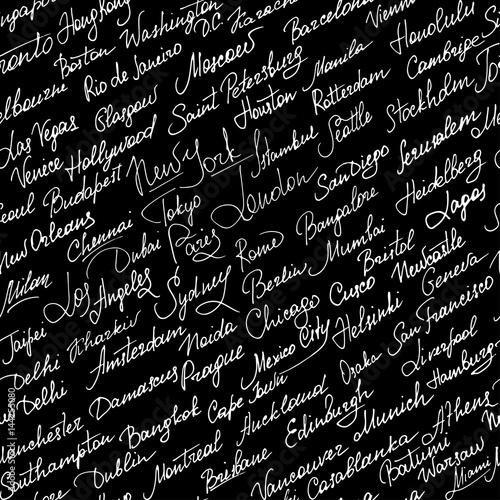 Singapore Hongkong Washington D.C. Karachi Barcelona Vienna Honolulu
Toronto Boston Rio de Janeiro Moscow Manila Cambridge
Melbourne Glasgow Saint Petersburg Houston Rotterdam Stockholm
Las Vegas Hollywood New York Istanbul Seattle Jerusalem
Venice Budapest Tokyo London San Diego Heidelberg
Seoul Chennai Paris Rome Bangalore Lagos
New Orleans Dubai Sydney Berlin Mumbai Bristol Newcastle Geneva
Milan Los Angeles Chicago Cusco San Francisco
Taipei Kharkiv Amsterdam Noida Mexico City Helsinki Liverpool
Delhi Damascus Prague Cape Town Osaka Hamburg
Delhi Bangkok Auckland Edinburgh Munich Athens
Manchester Southampton Montreal Brisbane Vancouver Casablanca Batumi Warsaw
Dublin